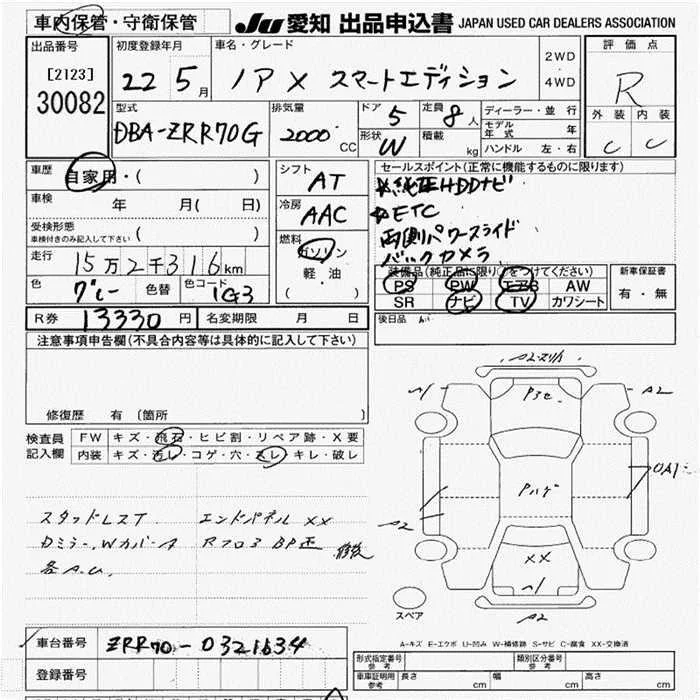 車内保管・守衛保管 JU 愛知 出品申込書 JAPAN USED CAR DEALERS ASSOCIATION
出品番号 初度登録年月 車名・グレード 2WD・4WD 評価点
[2123]
30082 22 5月 ノア X スマートエディション R
外装 内装
型式 排気量 ドア 5 定員 8人 ディーラー・並行
DBA-ZRR70G 2000 CC 形状 W 積載 kg モデル年式 年
ハンドル 左・右 C C
車歴 自家用・( ) シフト AT セールスポイント(正常に機能するものに限ります)
車検 年 月( 日) 冷房 AAC 純正HDDナビ
ETC
受検形態 車検付きのみ記入して下さい ( ) 燃料 ガソリン 両側パワースライド
バックカメラ
走行 15万2千316km 軽・油 ( ) 装備品(純正品に限り)○をつけてください 新車保証書
色 グレー 色替 色コード 1G3 PS PW エアB AW 有・無
SR ナビ TV カワシート
R券 13330円 名変期限 月 日 後日品
注意事項申告欄(不具合内容等は具体的に記入して下さい)
修復歴 有 (箇所 )
検査員記入欄 FW キズ・飛石・ヒビ割・リペア跡・X要
内装 キズ・汚レ・コゲ・穴・スレ・キレ・破レ
A1 A2
Pハゲ
A2
XX
A2
スペア
スタッドレスT エンドパネル XX
DミラーWカバーA Rフロア BP歪 修後
各A.U.
A-キズ E-エクボ U-凹み W-補修跡 S-サビ C-腐食 XX-交換済
車台番号 ZRR70-0321634
登録番号
形式指定番号 参考 類別区分番号 参考
車車証明用 参考 長さ cm 幅 cm 高さ cm